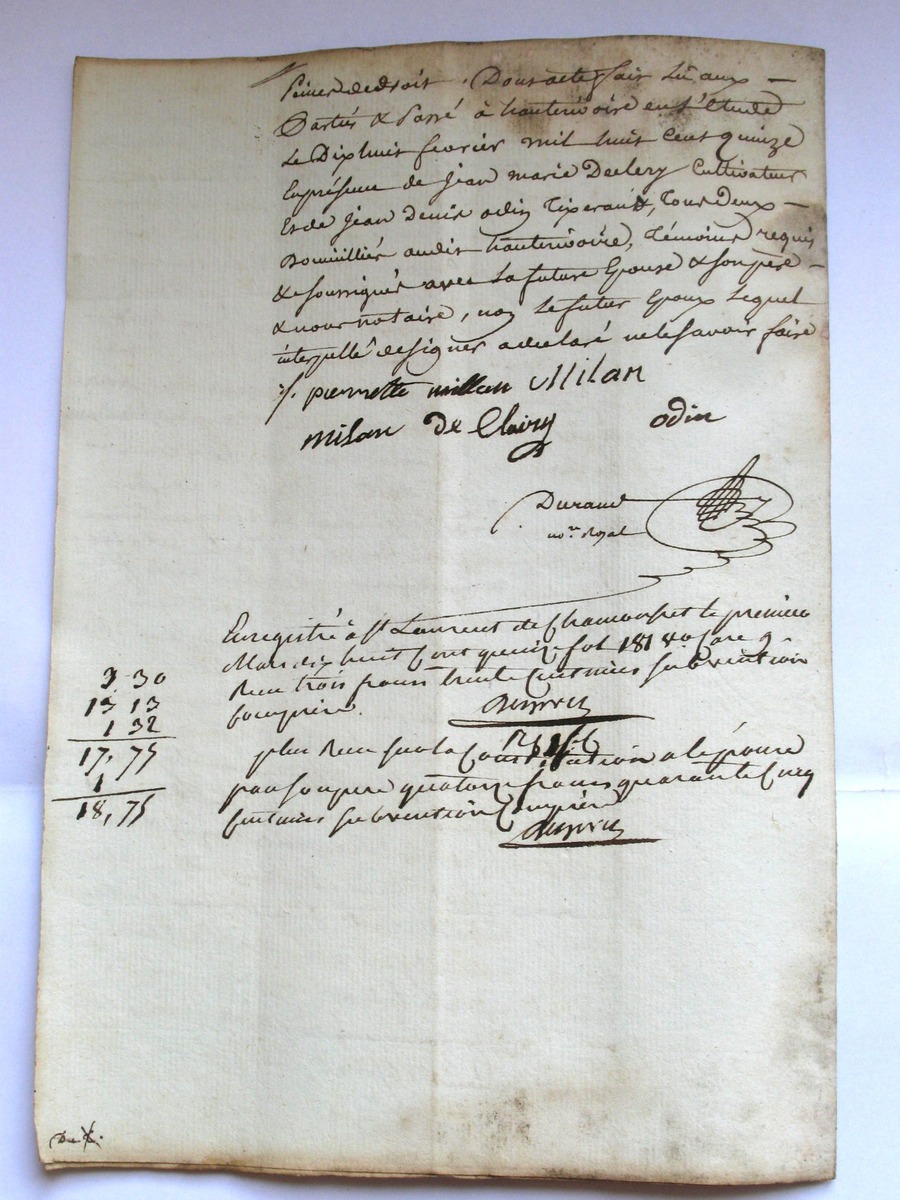 Peines de droit. Dont acte fait Lû aux
Parties & Passé à hauterivoire en l'étude
Le Dix huit fevrier mil huit Cent quinze
En présence de Jean marie Declery Cultivateur
Et de Jean Denis odin Tixerand, Tous Deux
Domicilliés audit hauterivoire, Témoins requis
& soussignés avec la future Epouse & son père
& nous notaire, non Le futur Epoux Lequel
interpellé de signer a declaré ne le savoir faire
pierrette millan Milan
milan de Clairy odin
Durand
no.re Royal
Enregistré à St Laurent de Chamousset le premier
Mars dix huit Cent quinze fol 181 vo case 9
Reçu trois francs trente Centimes subvention
Comprise.
3 30
13 13
1 32
17, 75
1
18, 75
plus Reçu sur la Constitution a lépouse
par son pere quatorze francs quarante Cinq
Centimes subvention Comprise